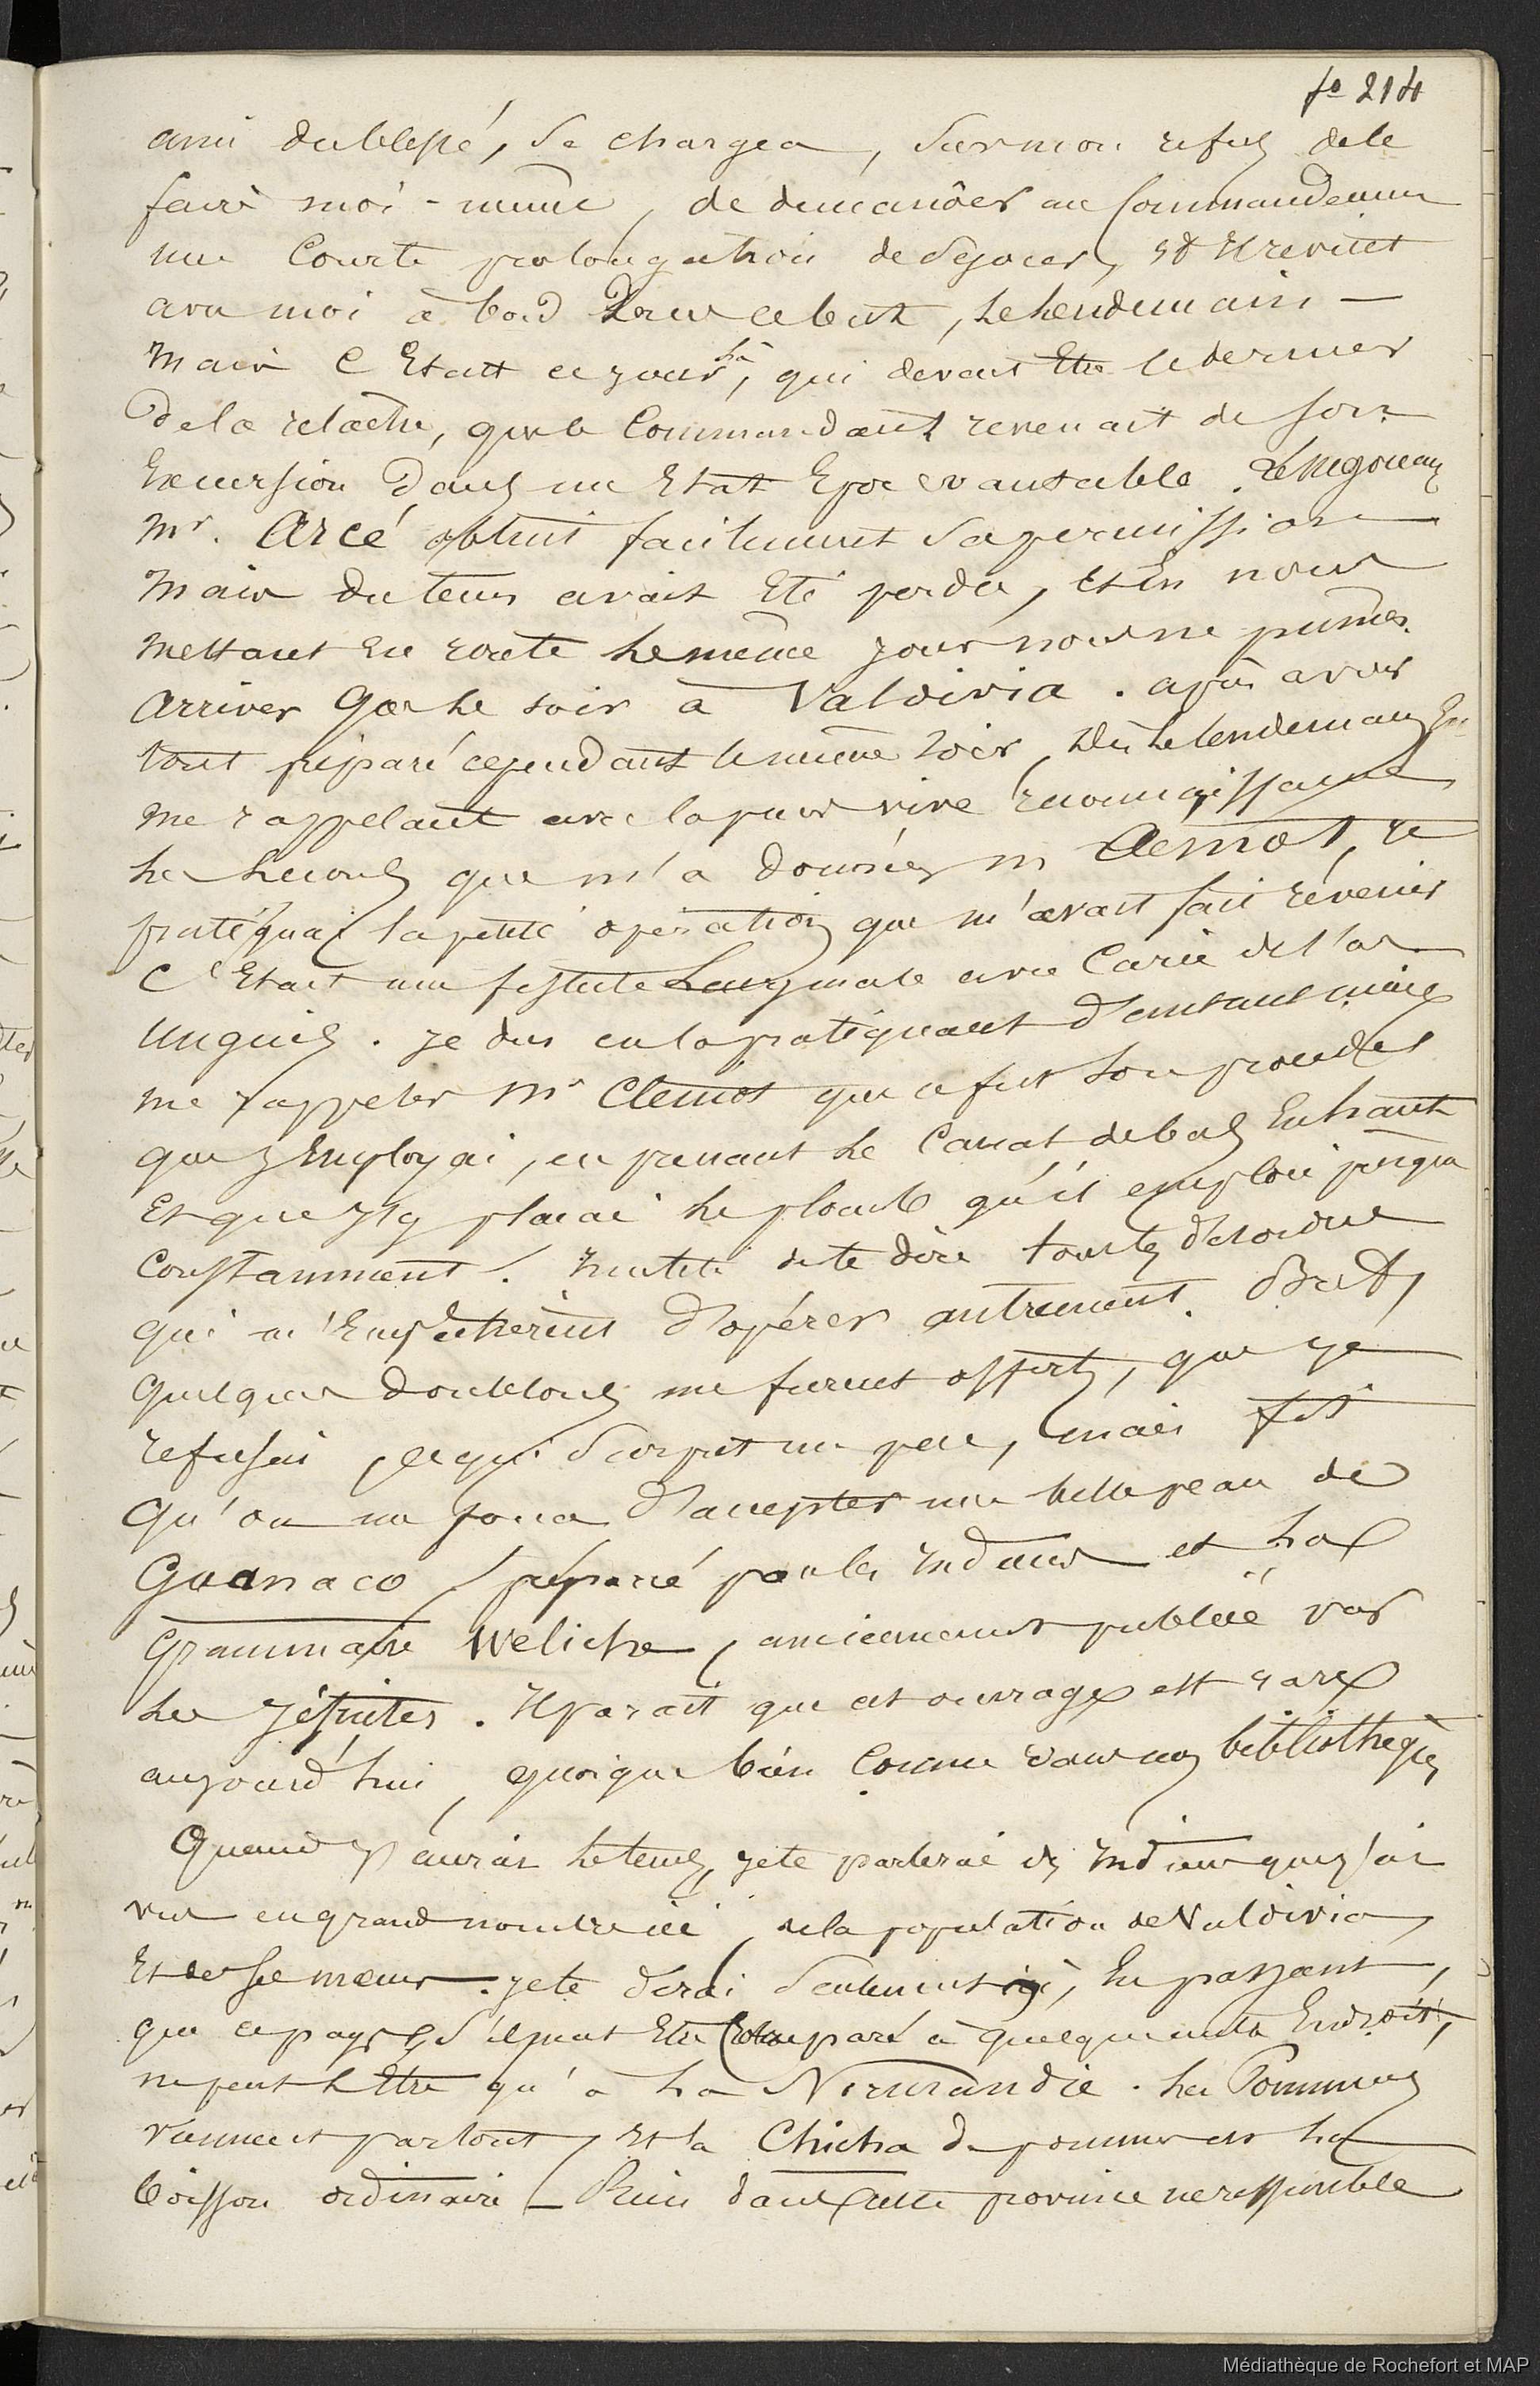 fo 214
ami du blessé, se chargea, sur mon refus de le
faire moi-même, de demander au Commandement
une Courte prolongation de séjour, et il revint
avec moi à bord dans ce but, le lendemain —
Mais C'Etait ce jour là, qui devait Etre le dernier
De la relâche, que le Commandant revenait de son
Excursion Dans un Etat Epouvantable.
Mr. Arcé obtint facilement sa permission
Mais du tems avait Eté perdu, et En nous
Mettant En route le même jour nous ne pumes
Arriver que le soir à Valdivia. après avoir
tout préparé cependant le même soir, dès le lendemain En
me rappelant avec la plus vive reconnaissance
les secours que m'a donnés mr Clémot, je
pratiquai la petite opération que m'avait fait revenir
C'Etait une fistule Lacrymale avec Carie de l'os
Unguis. je dus en la pratiquant d'autant mieux
me rappeler Mr Clémot que ce fut son procédé
que j'Employai, en perçant le Canal de bas En haut
Et que j'y plaçai le plomb qu'il emploie presque
Constamment. Inutile de te dire toutes les raisons
qui m'Empêchèrent d'opérer autrement. Bref,
quelques doublons me furent offerts, que je
refusai, ce qui surprit un peu, mais fit
qu'on me força d'accepter une belle peau de
Guanaco, préparée par les Indiens et la
Grammaire Weliche, anciennement publiée par
les Jésuites. Il parait que cet ouvrage est rare
aujourd'hui, quoique bien Connu dans nos bibliothèques
Quand j'aurai le tems, je te parlerai des Indiens que j'ai
vus en grand nombre ici, de la population de Valdivia,
Et de ses mœurs. je te dirai seulement ici, En passant,
que ce pays, s'il peut Etre Comparé à quelque autre Endroit,
ne peut l'Etre qu'à la Normandie. les Pommes
viennent partout, Et la Chicha de pommes est la
boisson ordinaire — Rien dans cette province ne ressemble
Médiathèque de Rochefort et MAP